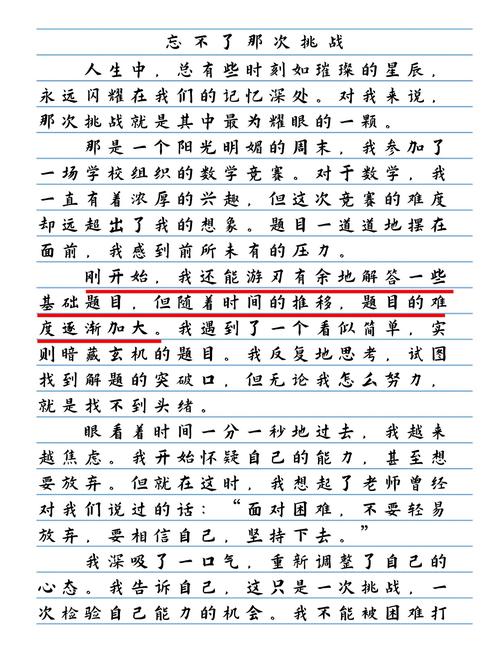 忘不了那次挑战
人生中，总有些时刻如璀璨的星辰，
永远闪耀在我们的记忆深处。对我来说，
那次挑战就是其中最为耀眼的一颗。
那是一个阳光明媚的周末，我参加了
一场学校组织的数学竞赛。对于数学，我
一直有着浓厚的兴趣，但这次竞赛的难度
却远超出了我的想象。题目一道道地摆在
面前，我感到前所未有的压力。
刚开始，我还能游刃有余地解答一些
基础题目，但随着时间的推移，题目的难
度逐渐加大。我遇到了一个看似简单，实
则暗藏玄机的题目。我反复地思考，试图
找到解题的突破口，但无论我怎么努力，
就是找不到头绪。
眼看着时间一分一秒地过去，我越来
越焦虑。我开始怀疑自己的能力，甚至想
要放弃。但就在这时，我想起了老师曾经
对我们说过的话：“面对困难，不要轻易
放弃，要相信自己，坚持下去。”
我深吸了一口气，重新调整了自己的
心态。我告诉自己，这只是一次挑战，一
次检验自己能力的机会。我不能被困难打